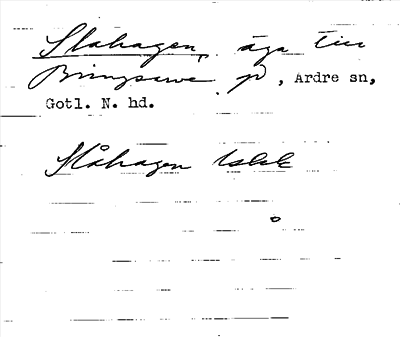 Slahagen, äga till
Bringsarve p, Ardre sn,
Gotl. N. hd.
Slåhagen